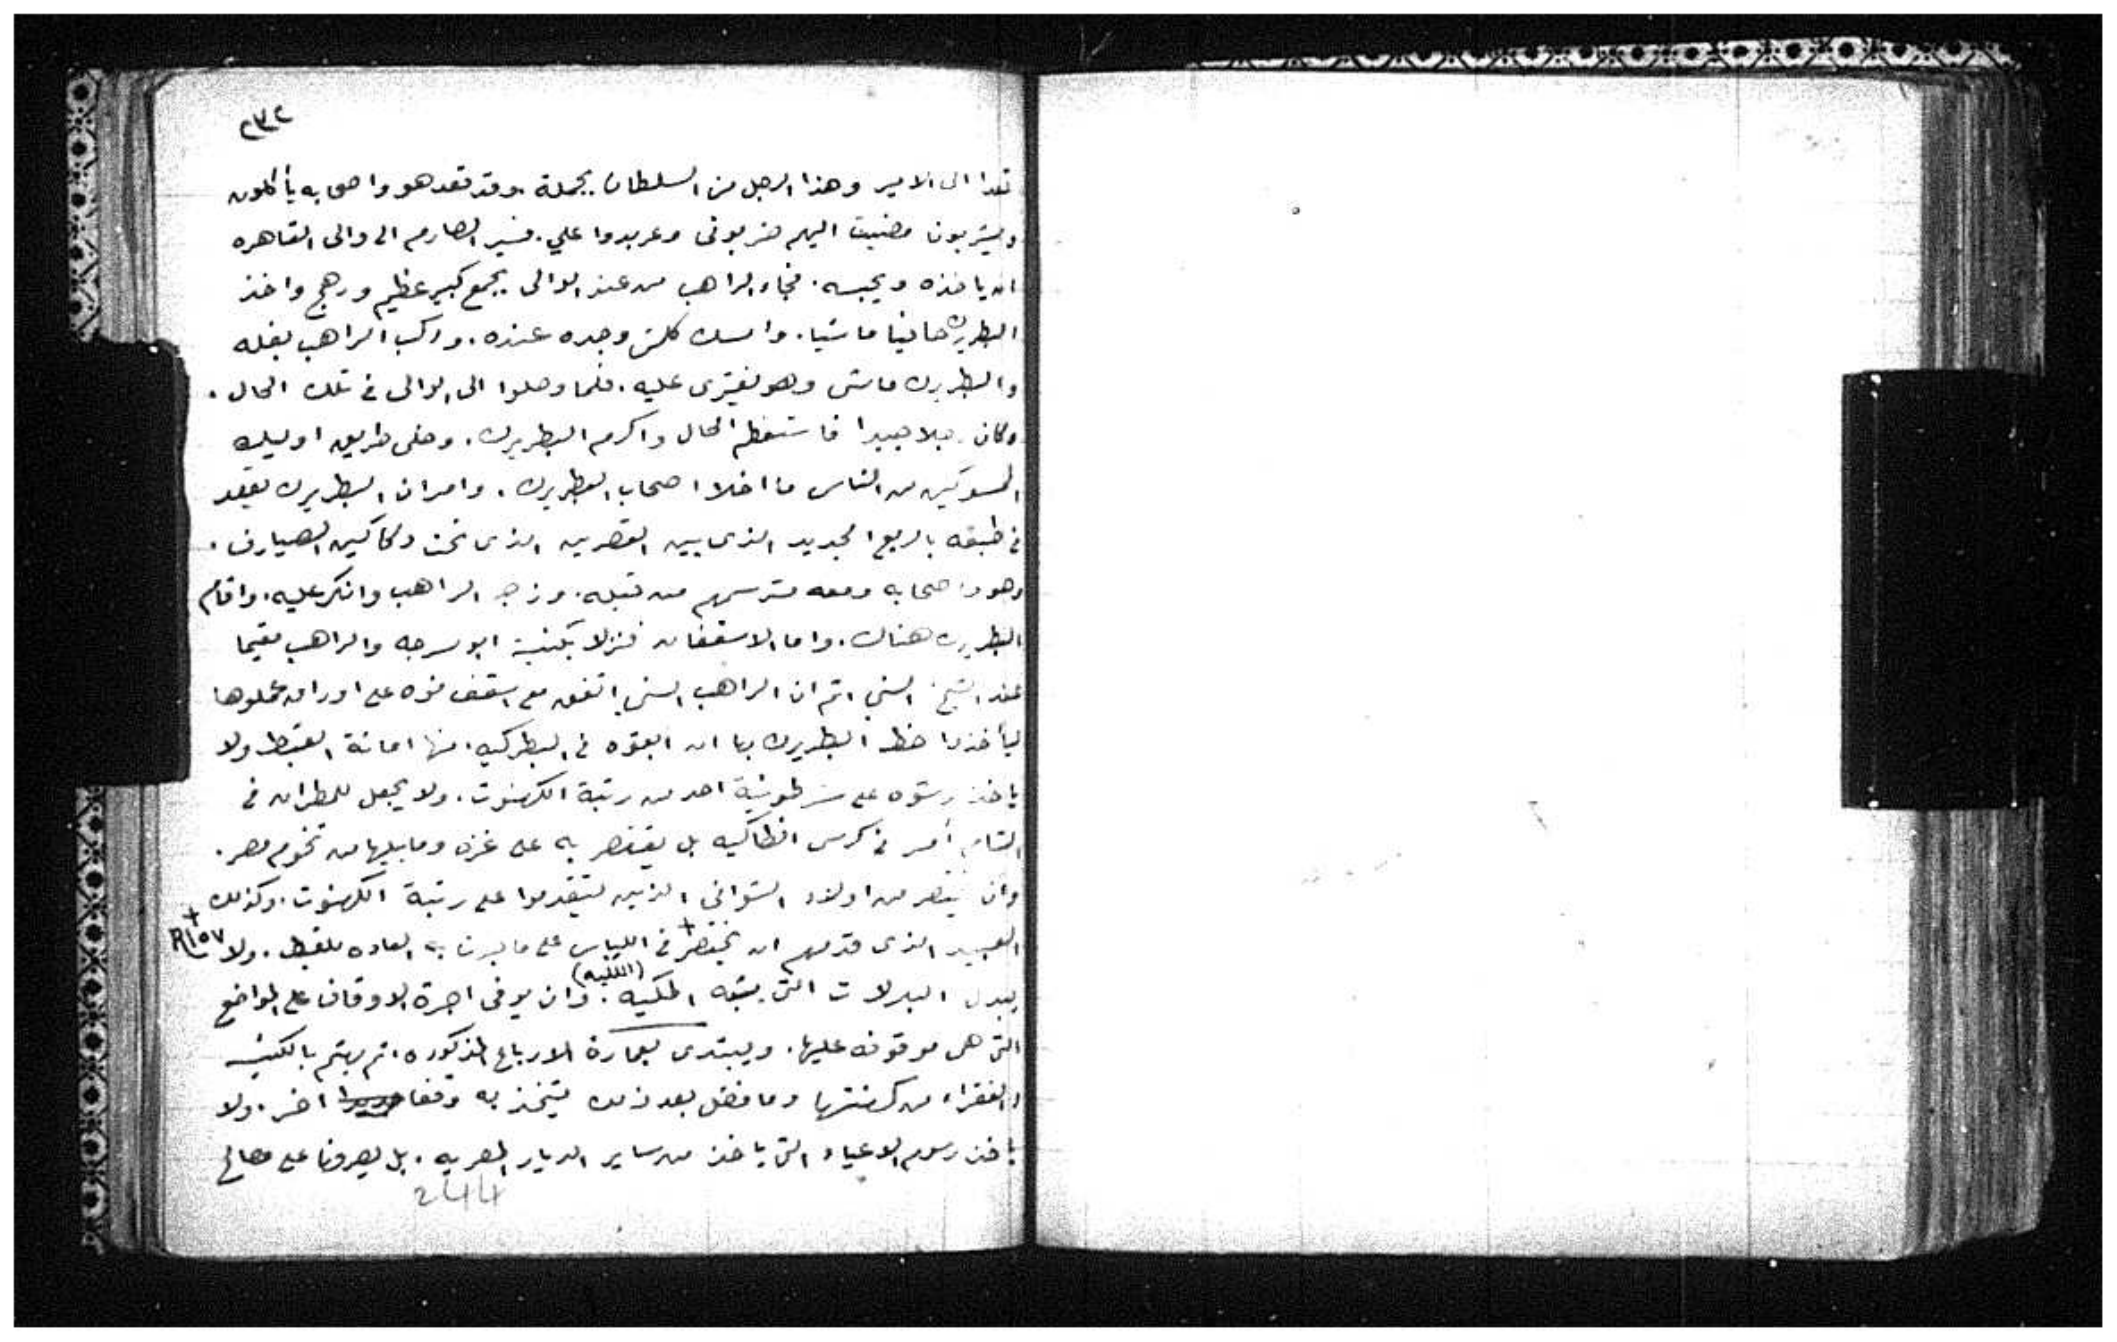 ٢٣٢
تعدا الى الامير وهذا الرجل من السلطان بجملة. وقد قعد هو واصحابه يأكلون
ويشربون مضيت اليهم ضربونى وعربدوا علي. فسير الصارم الى والى القاهره
ان ياخذه ويحبسه. فجاء الراهب من عند الوالى بجمع كبير عظيم ورهج واخذ
البطريرك حافيا ماشيا. وامسك كلمن وجده عنده. وركب الراهب بغله
والبطريرك ماشى وهو يفترى عليه. فلما وصلوا الى الوالى فى تلك الحال.
وكان رجلا جيدا فاستعظم الحال واكرم البطريرك. وخلى طريق اوليك
الممسوكين من الناس ما اخلا اصحاب البطريرك. وامر ان البطريرك يقعد
فى طبقه بالربع الجديد الذى بين القصرين الذى تحت دكاكين الصيارف.
وهو واصحابه ومعه مترسمهم من قبله. وزجر الراهب وانكر عليه. واقام
البطريرك هناك. واما الاسقفان فنزلا بكنيسة ابو سرجه والراهب مقيما
عند الشيخ السنى اتم ان الراهب السنى اتفق مع اسقف فوه على اوراق عملوها
ليأخذوا خط البطريرك بها ان ابقوه فى البطركيه. منها امانة القبط ولا
ياخذ رشوه على شرطونية احد من رتبة الكهنوت. ولا يجعل للمطران فى
الشام أمر فى كرسى انطاكيه بل يقتصر به على غزه وما يليها من تخوم مصر.
وان يقتصر من اولاد السوانى الذين ليتقدموا على رتبة الكهنوت. وكذلك
العبيد الذى قدمهم ان يختصر+ فى اللباس على ما جرت به العاده للقبط. ولا
+ R١٥٧
يبدل البدلات التى يشبه الملكيه (الملكيه). وان يوفى اجرة الاوقاف على المواضع
التى هى موقوفه عليها. ويبتدى بعمارة الارباع المذكوره. ثم يهتم بالكنيسه
والفقراء من كهنتها وما فضل بعد ذلك يتخذ به وقفا اخر. ولا
ياخذ رسوم الاعياد التى ياخذ من ساير الديار المصريه. بل يصرفها على مصالح
244